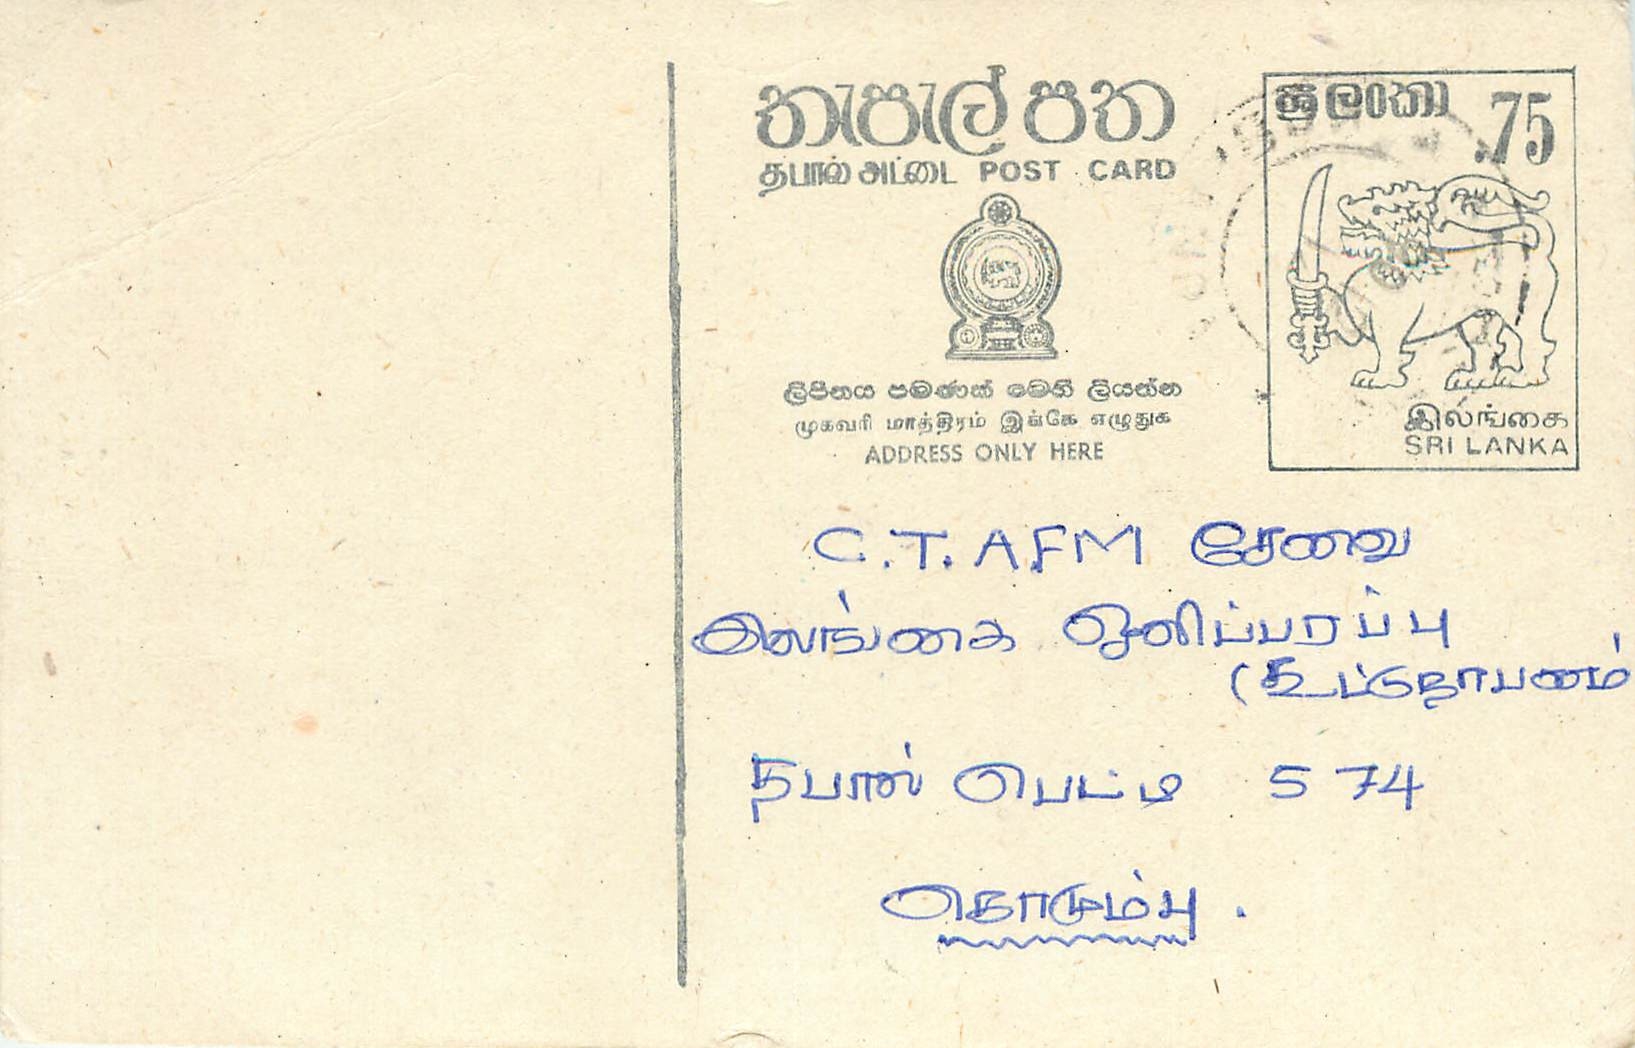 තැපැල් පත
தபால் அட்டை POST CARD
ශ්‍රී ලංකා
.75
ලිපිනය පමණක් මෙහි ලියන්න
முகவரி மாத்திரம் இங்கே எழுதுக
ADDRESS ONLY HERE
இலங்கை
SRI LANKA
C.T.AFM சேவை
இலங்கை ஒலிப்பரப்பு
(கூட்டுதாபனம்
தபால் பெட்டி 574
கொழும்பு.